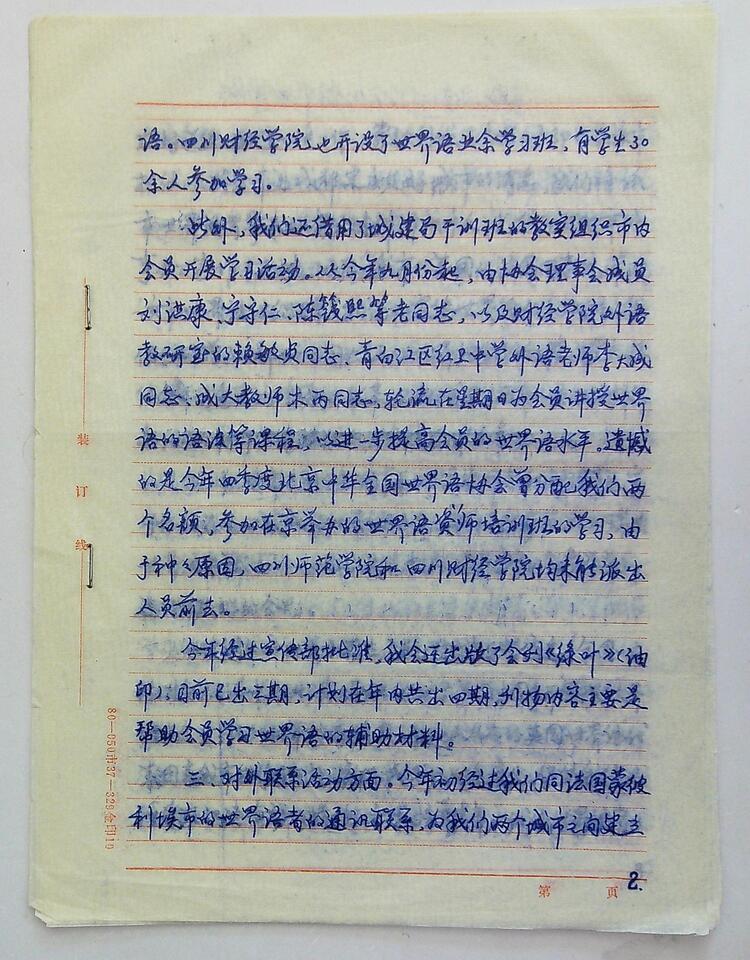 语。四川财经学院也开设了世界语业余学习班,有学生30
余人参加学习。
此外,我们还借用了城建局干训班的教室组织市内
会员开展学习活动。从今年九月份起,由协会理事会成员
刘洪康、宁守仁、陈籛熙等老同志,以及财经学院外语
教研室的赖敏贞同志、青白江区红卫中学外语老师李大成
同志、成大教师朱丙同志,轮流在星期日为会员讲授世界
语的语法等课程,以进一步提高会员的世界语水平。遗憾
的是今年四季度北京中华全国世界语协会曾分配我们两
个名额,参加在京举办的世界语师资培训班的学习,由
于种々原因,四川师范学院和四川财经学院均未能派出
人员前去。
今年经过宣传部批准,我会还出版了会刊《绿叶》(油
印),目前已出三期,计划在年内共出四期,刊物内容主要是
帮助会员学习世界语的辅助材料。
三、对外联系活动方面。今年初经过我们同法国蒙彼
利埃市的世界语者的通讯联系,为我们两个城市之间建立
装订线
80—050市37—329金印10
第 页
2.